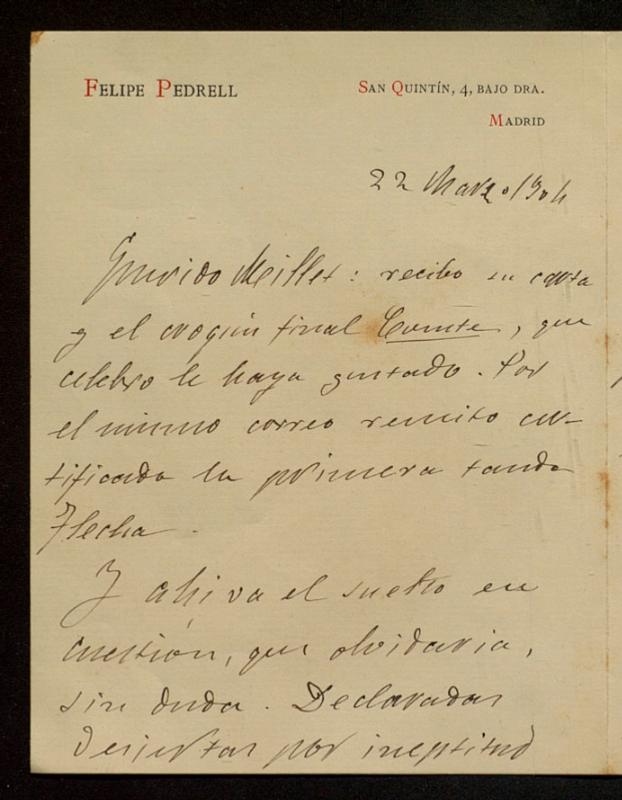 FELIPE PEDRELL
SAN QUINTÍN, 4, BAJO DRA.
MADRID
22 Marzo 1904
Querido Millet: recibo su carta
y el croquis final Comte, que
celebro le haya gustado. Por
el mismo correo remito cer-
tificada la primera tanda
Flecha.
Y ahi va el suelto en
cuestión, que olvidaria,
sin duda. Declaradas
desiertas por ineptitud